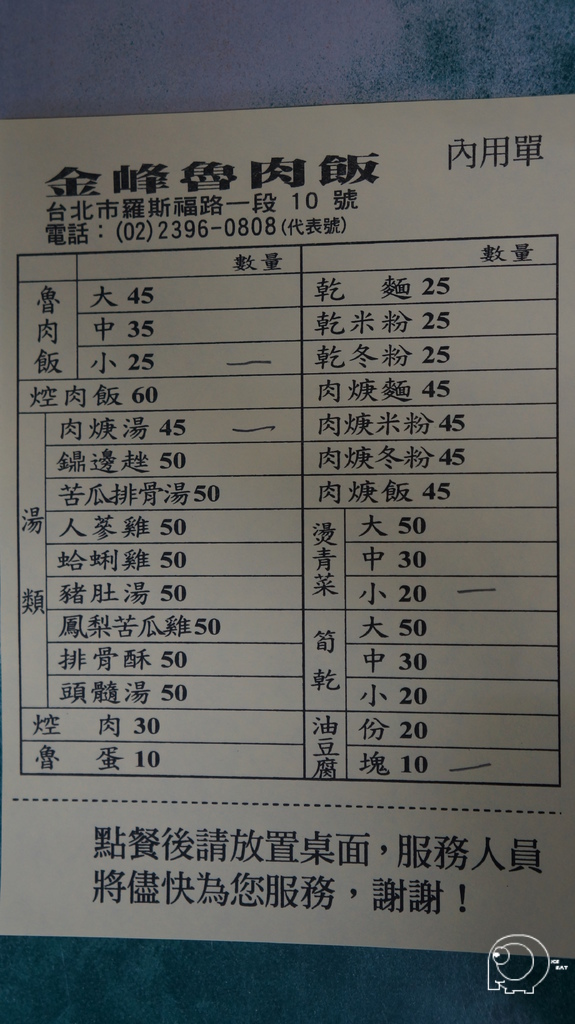 金峰魯肉飯
內用單
台北市羅斯福路一段 10 號
電話：(02)2396-0808(代表號)
數量
魯肉飯
大 45
中 35
小 25 一
焢肉飯 60
湯類
肉焿湯 45 一
鼎邊趖 50
苦瓜排骨湯50
人蔘雞 50
蛤蜊雞 50
豬肚湯 50
鳳梨苦瓜雞50
排骨酥 50
頭髓湯 50
焢肉 30
魯蛋 10
數量
乾麵 25
乾米粉 25
乾冬粉 25
肉焿麵 45
肉焿米粉 45
肉焿冬粉 45
肉焿飯 45
燙青菜
大 50
中 30
小 20 一
筍乾
大 50
中 30
小 20
油豆腐
份 20
塊 10 一
點餐後請放置桌面，服務人員
將儘快為您服務，謝謝！